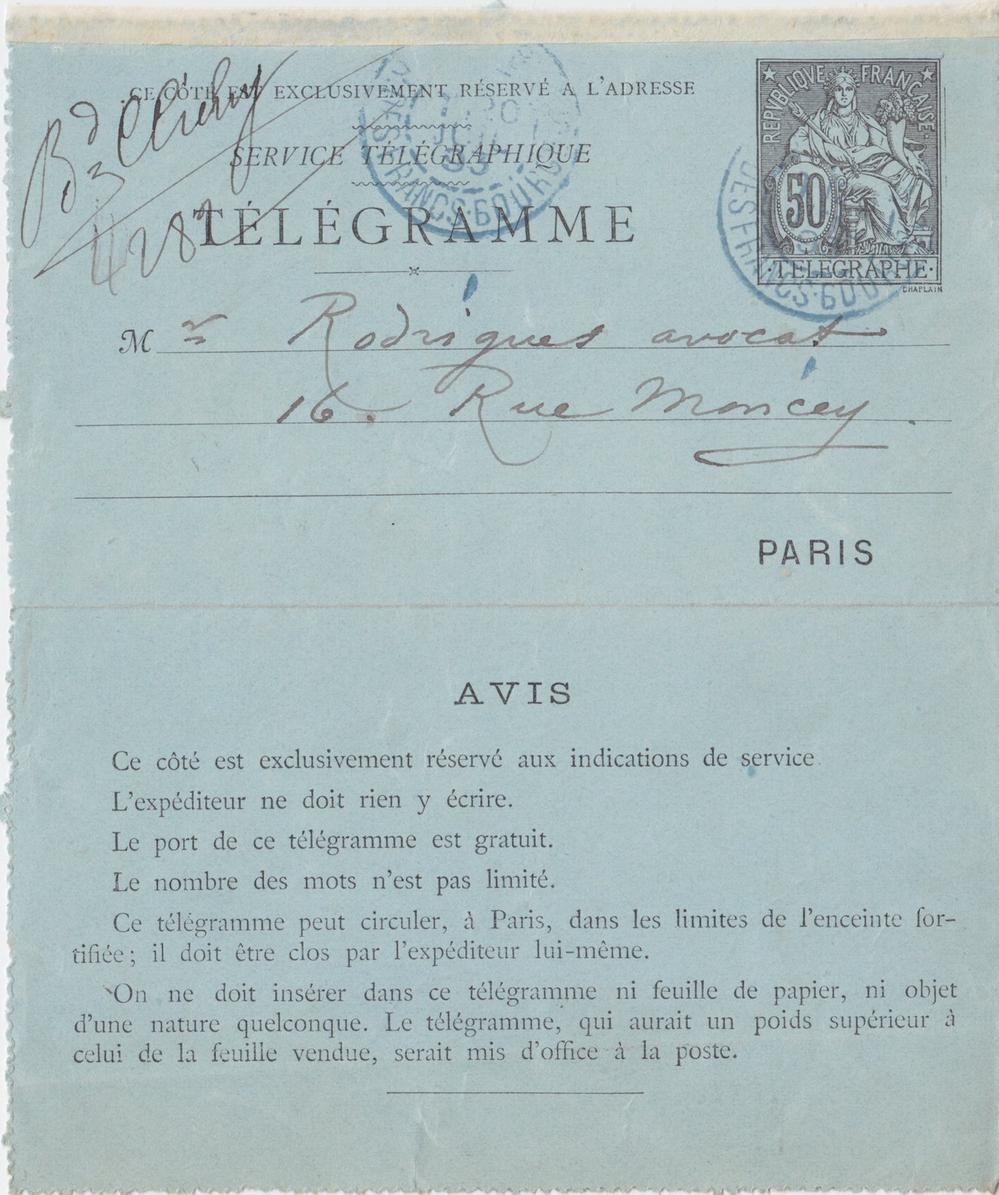 CE CÔTÉ EST EXCLUSIVEMENT RÉSERVÉ A L'ADRESSE
Bd Clichy
SERVICE TÉLÉGRAPHIQUE
TÉLÉGRAMME
REPVBLIQVE FRANÇAISE
50
TELEGRAPHE
CHAPLAIN
FRANCS-BOURG
DES FRANCS-BOU
Mr Rodrigues avocat
16. Rue Moncey
PARIS
AVIS
Ce côté est exclusivement réservé aux indications de service.
L'expéditeur ne doit rien y écrire.
Le port de ce télégramme est gratuit.
Le nombre des mots n'est pas limité.
Ce télégramme peut circuler, à Paris, dans les limites de l'enceinte for-
tifiée; il doit être clos par l'expéditeur lui-même.
On ne doit insérer dans ce télégramme ni feuille de papier, ni objet
d'une nature quelconque. Le télégramme, qui aurait un poids supérieur à
celui de la feuille vendue, serait mis d'office à la poste.